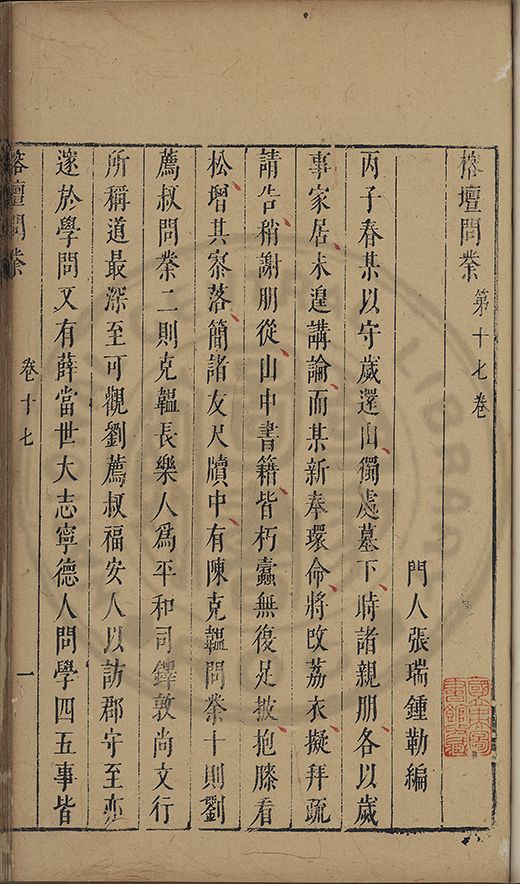 榕壇問業 第十七卷
門人張瑞鍾勒編
丙子春某以守歲還山獨處墓下時諸親朋各以歲
事家居未遑講論而某新奉環命將改荔衣擬拜疏
請告稍謝朋從山中書籍皆朽蠹無復足披抱膝看
松增其寥落簡諸友尺牘中有陳克韞問業十則劉
薦叔問業二則克韞長樂人爲平和司鐸敦尚文行
所稱道最深至可觀劉薦叔福安人以訪郡守至亦
邃於學問又有薛當世大志寧德人問學四五事皆
榕壇問業 卷十七 一